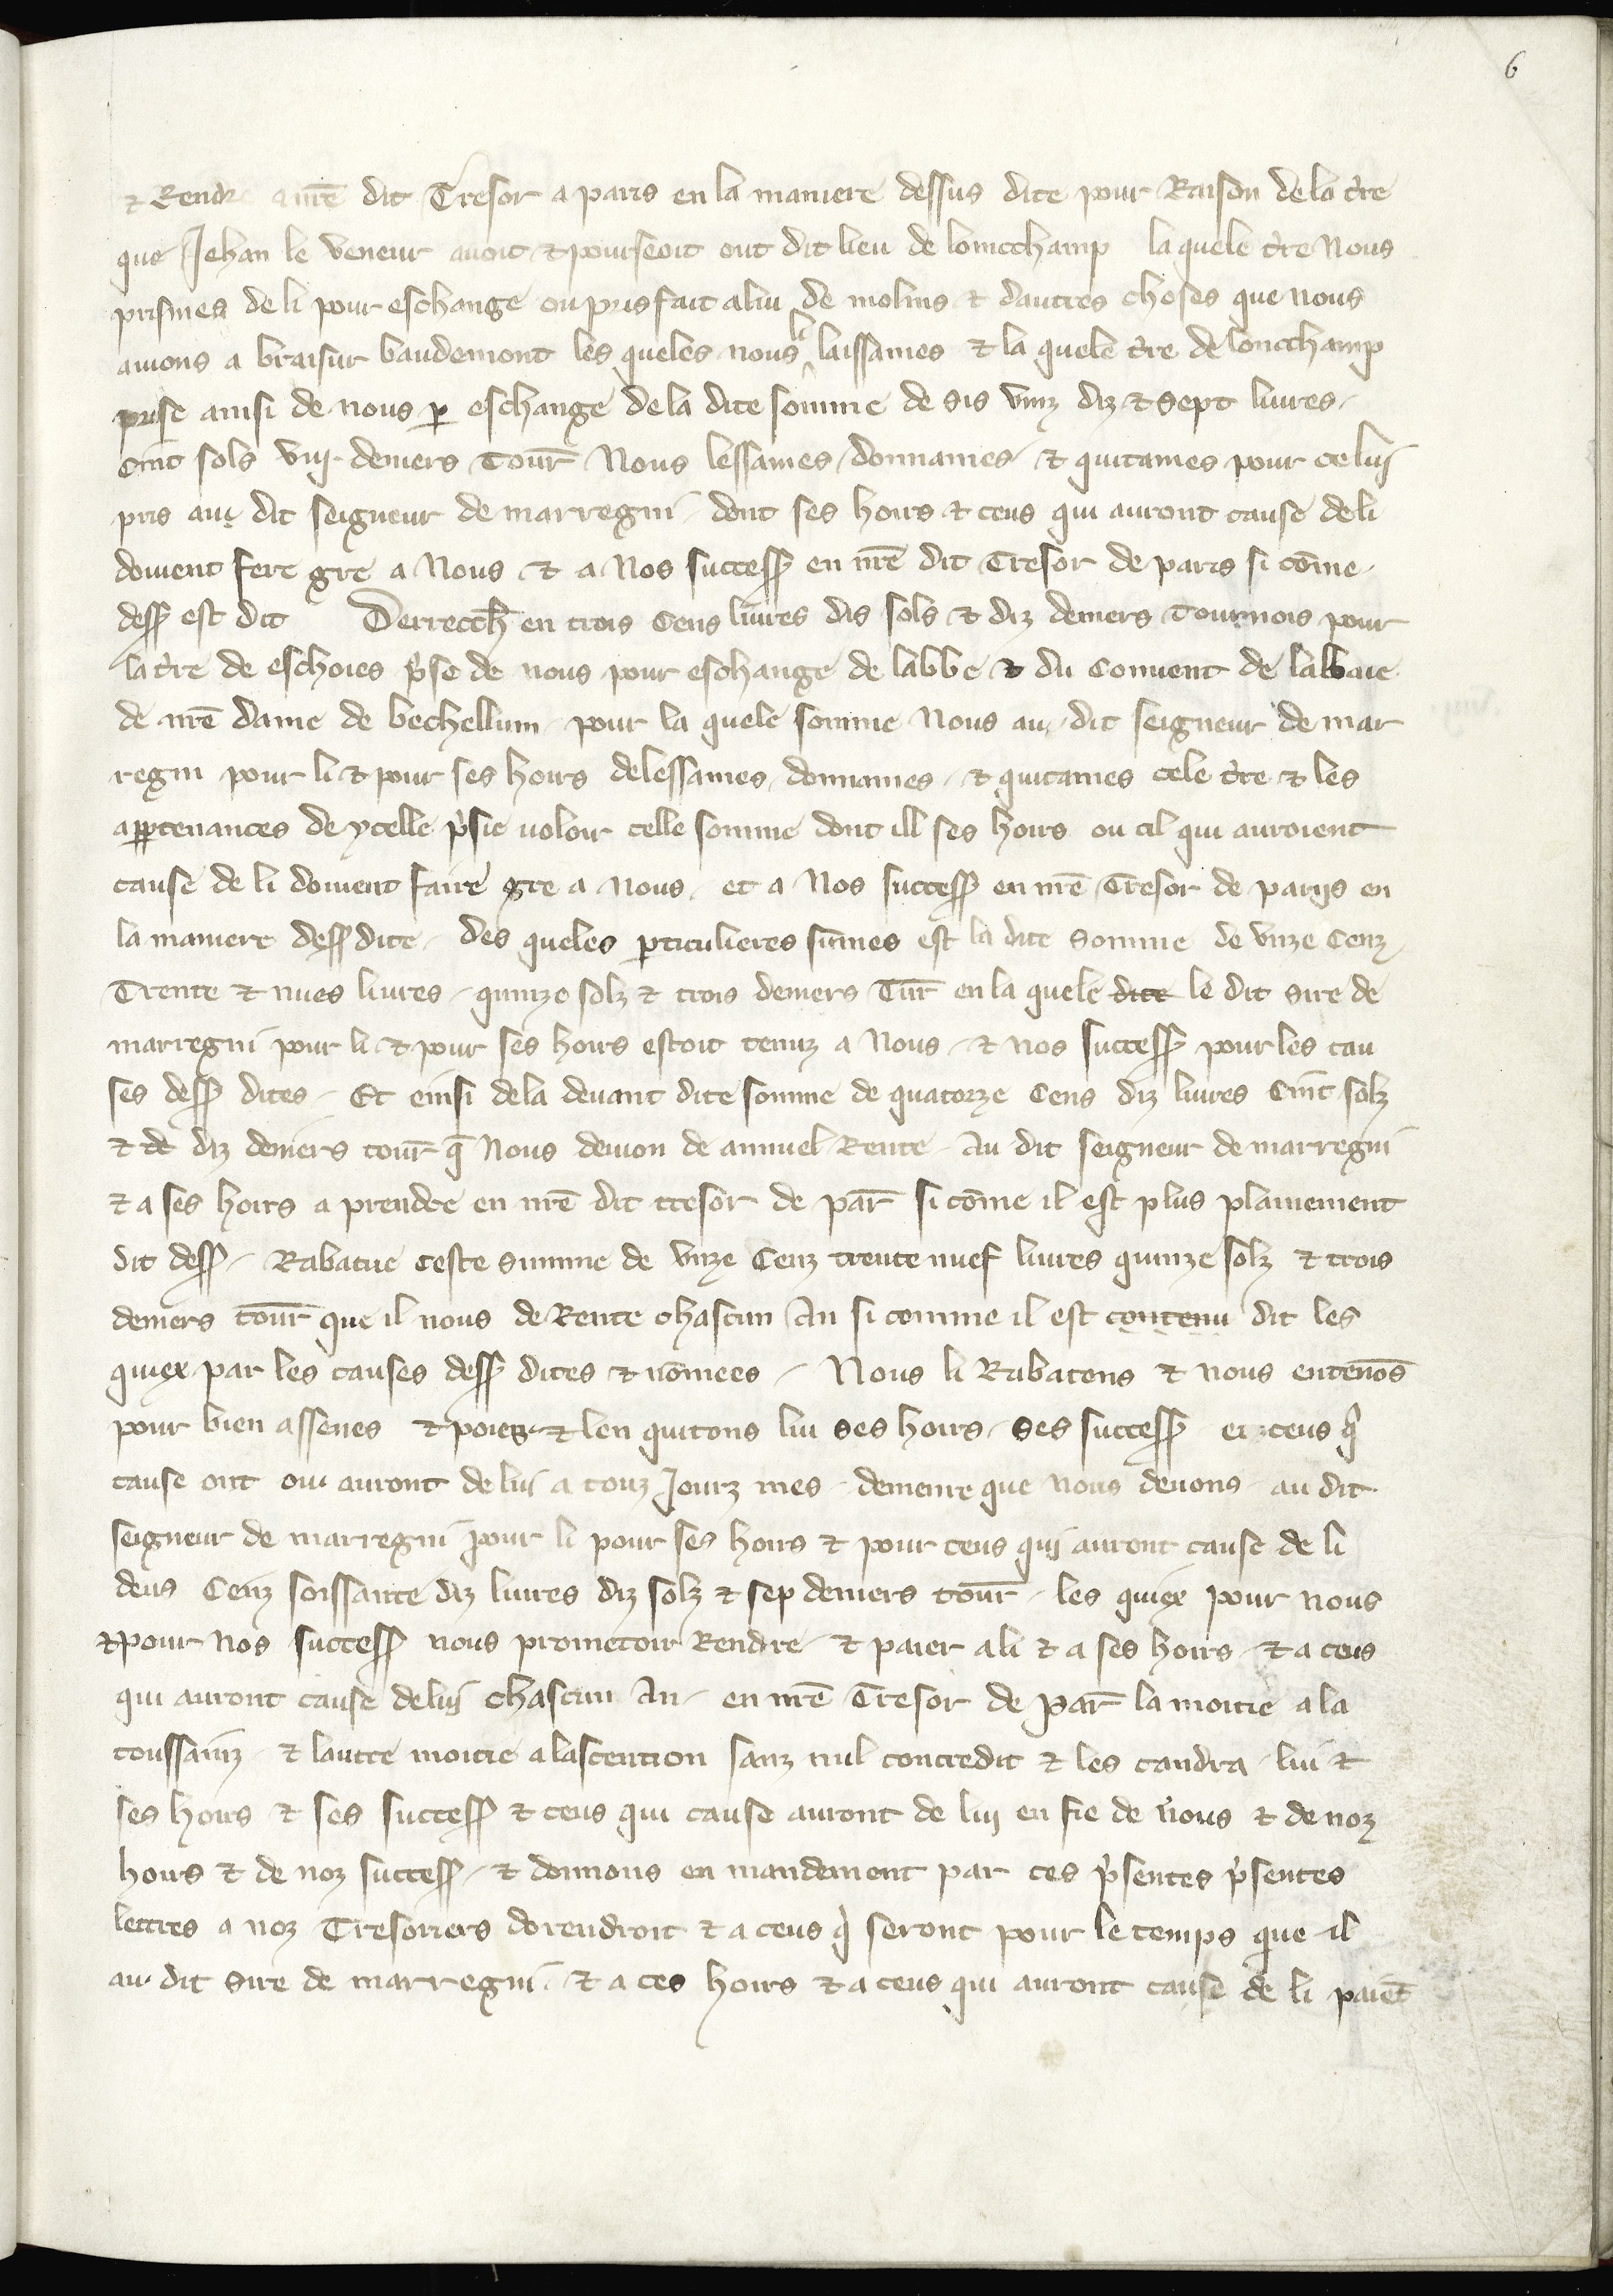 6
& Rendr a nr̄e dit Tresor a paris en la maniere dessus dite pour Raison de la t̾re
que Jehan le veneur auoit & pourseoit out dit lieu de loncchamp la quele t̾re Nous
prismes de li pour eschange ou pris fait a lui de molins & dautres choses que nous
auions a braisur baudemont les queles nous li laissames & la quele t̾re de loncchamp
prise ainsi de nous ꝑ eschange de la dite somme de sis vinz diz & sept liures
cinc sols viij deniers Tour̄ Nous lessames donnames & quitames pour celui
pris au dit seigneur de marregni dont ses hoirs & ceus qui auront cause de li
doiuent fere gre a Nous & a Nos success̄ en nr̄e dit Tresor de paris si cōme
dess̄ est dit Derrech̄ en trois Cens liures dis sols & diz deniers Tournois pour
la t̾re de eschoies p̾se de nous pour eschange de labbe & du Conuent de labbaie
de nr̄e dame de bechellum pour la quele somme Nous au dit seigneur de mar
regni pour li & pour ses hoirs delessames donnames & quitames cele t̾re & les
apꝑtenances de ycelle p̾sie ualoir celle somme dont ill ses hoirs ou cil qui auroient
cause de li doiuent faire gre a Nous et a Nos success̄ en nr̄e Tresor de parijs en
la maniere dess̄ dite des queles ꝑticulieres sūmes est la dite Somme de vnze Cenz
Trente & nues liures quinze solz & trois deniers Tur̄ en la quele dite le dit Sire de
marregni pour li & pour ses hoirs estoit tenuz a Nous & nos success̄ pour les cau
ses dess̄ dites Et einsi de la deuant dite somme de quatorze Cens diz liures Cinc solz
& de diz deniers tour̄ q̄ Nous deuon de annuel Rente Au dit seigneur de marregni
& a ses hoirs a prendre en nr̄e dit tresor de par̄ si cōme il est plus plainement
dit dess̄ Rabatue ceste Summe de vnze Cenz trente nuef liures quinze solz & trois
deniers tour̄ que il nous de Rente chascun An si comme il est contenu dit les
quiex par les causes dess̄ dites & nōmees Nous li Rabatens & nous entenōs
pour bien assenes & poiez & len quitons lui ses hoirs Ses success̄ et ceus q̾
cause ont ou auront de lui a touz Jourz mes demeure que nous deuons au dit
seigneur de marregni pour li pour ses hoirs & pour ceus qui auront cause de li
deus Cenz soissante diz liures diz solz & sep deniers tour̄ les quiex pour nous
& pour Nos success̄ nous prometoir Rendre & paier a li & a ses hoirs & a ceus
qui auront cause de lui chascun An en nr̄e Tresor de par̄ la moitie a la
toussainz & lautre moitie a lascention sanz nul contredit & les tandra lui &
ses hoirs & ses success̄ & ceus qui cause auront de lui en fie de nous & de noz
hoirs & de noz success̄ & donnons en mandement par ces p̾sentes p̾sentes
lettres a noz Tresoriers dorendroit & a ceus q̾ seront pour le temps que il
au dit Sire de marregni & a ces hoirs & a ceus qui auront cause de li paiēt